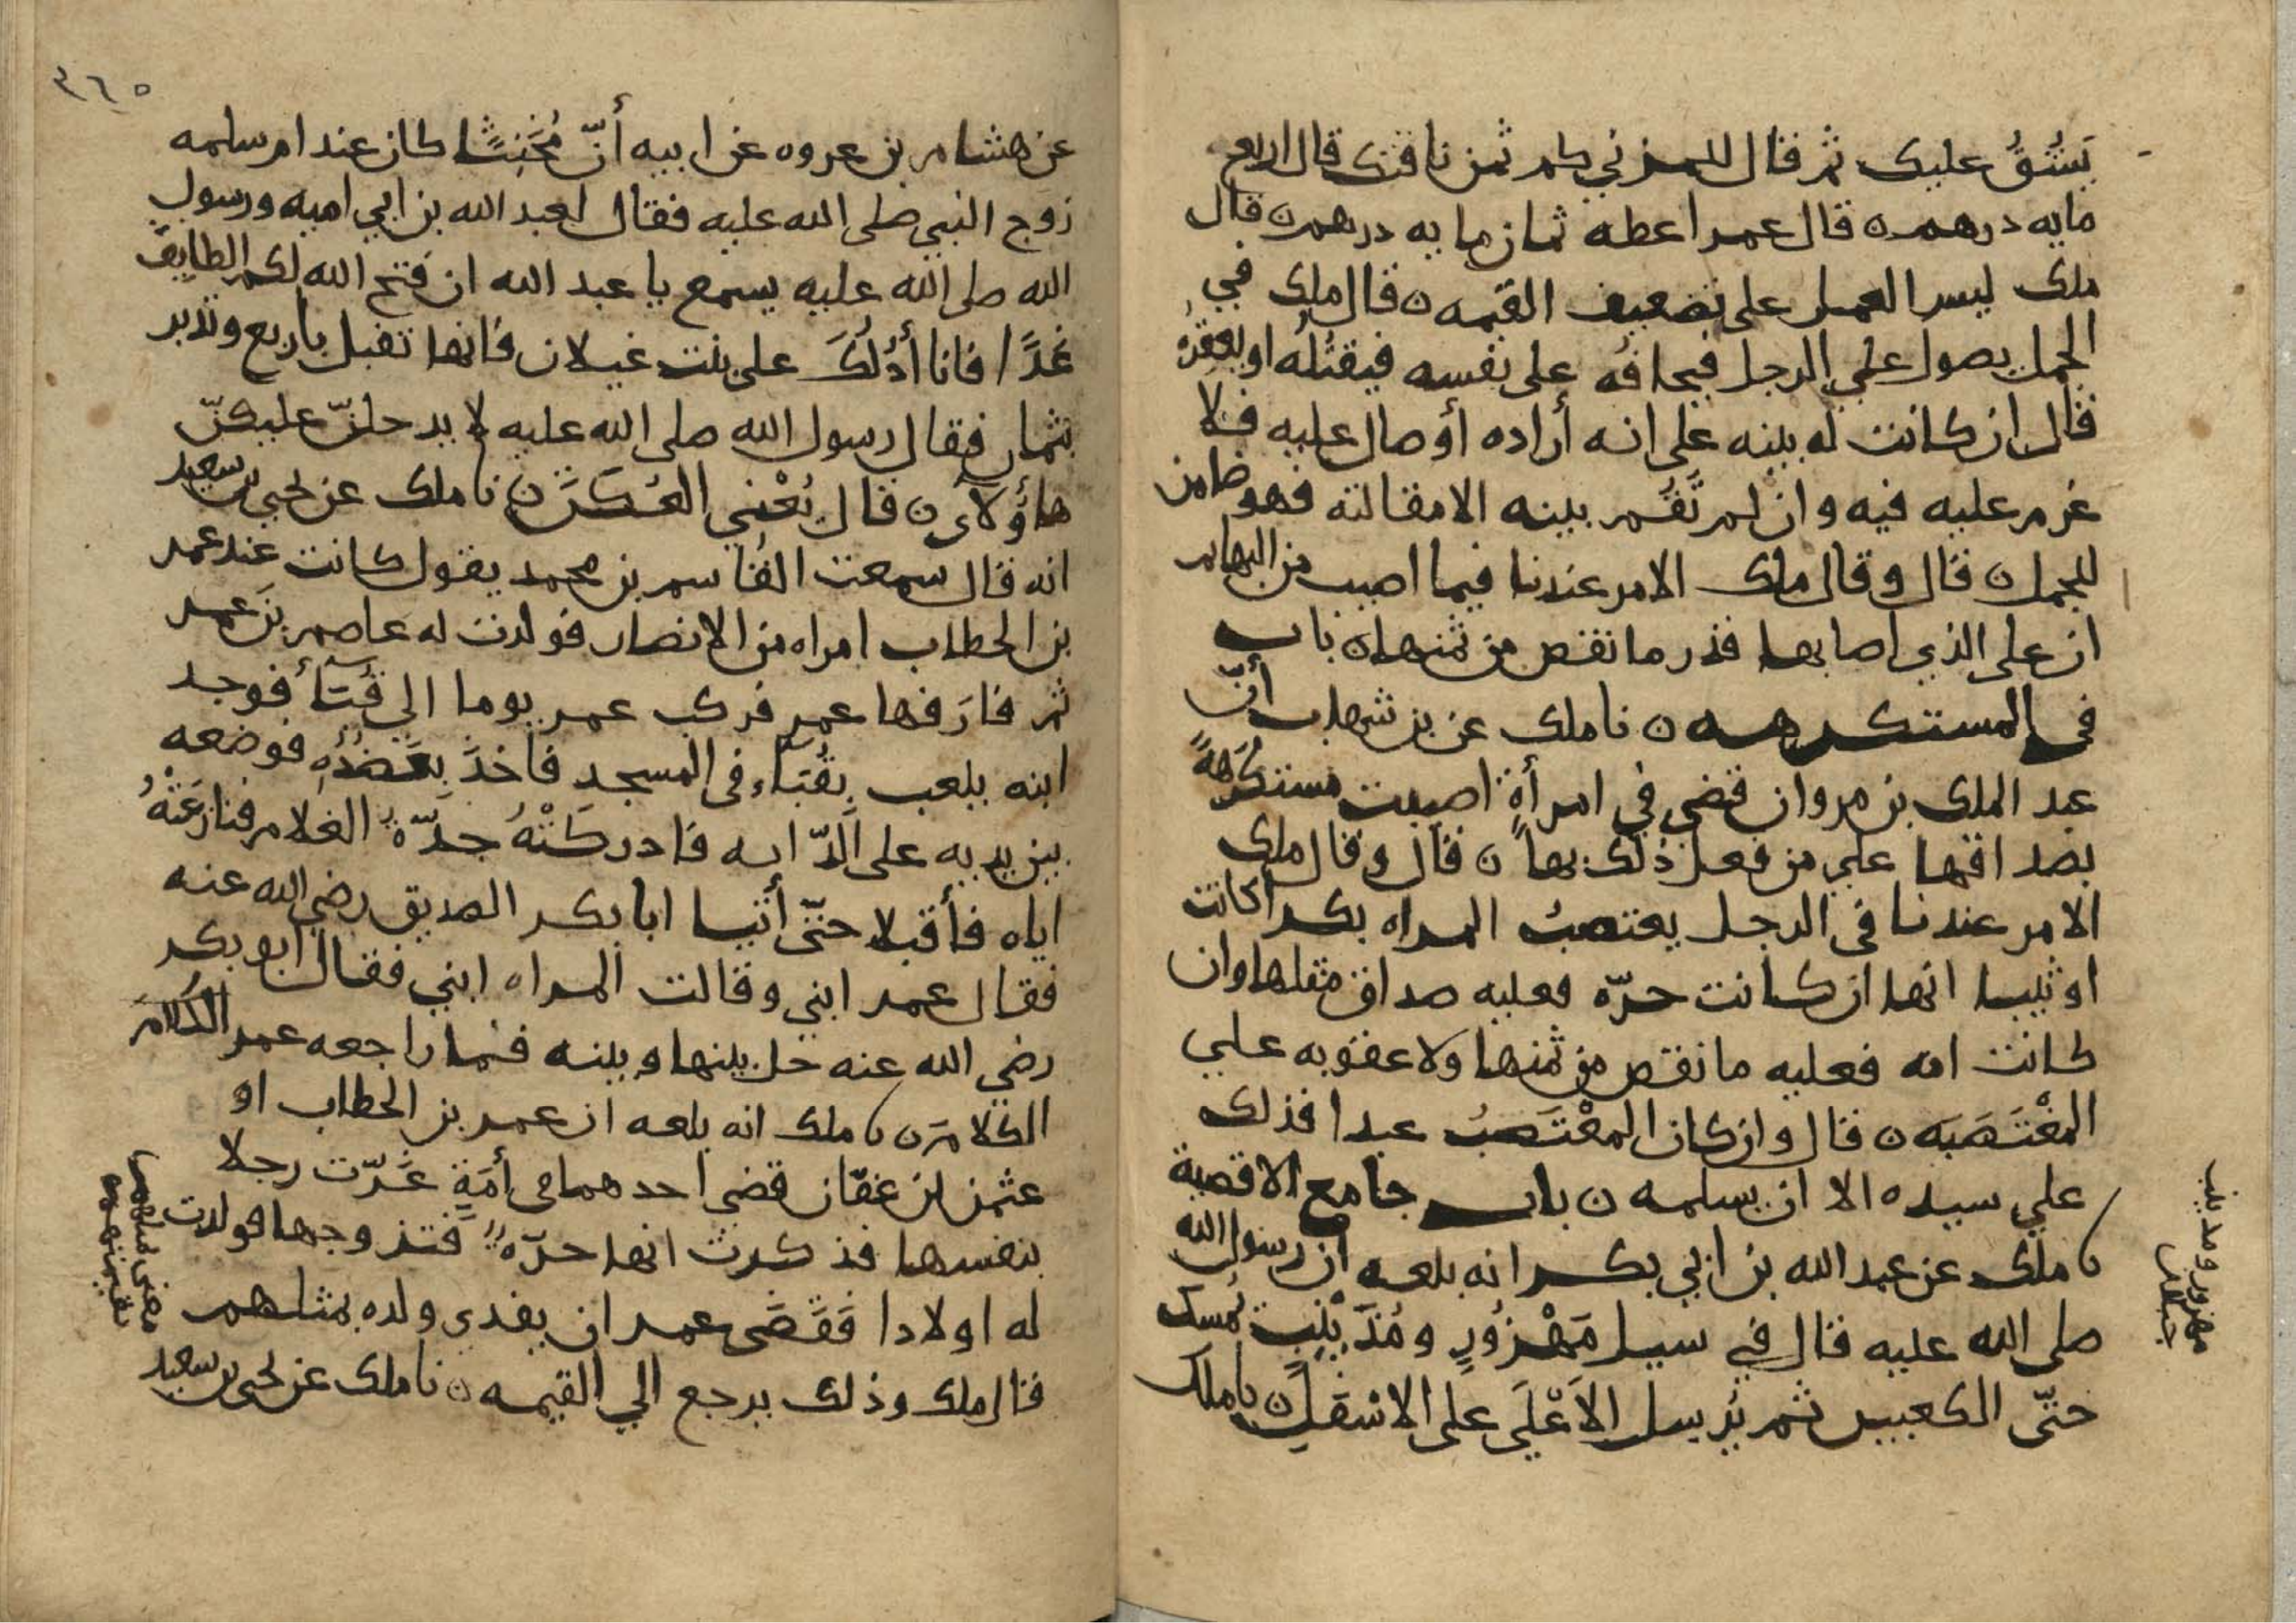 يَشُقُّ عليك ثم قال للمزني كم ثمن ناقتك قال اربع
مايه درهم ن قال عمر اعطه ثمان مايه درهم ن قال
ملك ليس العمل على تضعيف القيمه ن قال ملك في
الجمل يصول علي الرجل فيخافه على نفسه فيقتله او يعقرُه
قال ان كانت له بينه على انه أراده أو صال عليه فلا
غرم عليه فيه وان لم تَقُم بينه الا مقالته فهو ضامن
للجمل ن قال وقال ملك الامر عندنا فيما اصيب من البهايم
ان على الذي اصابها قدر ما نقص من ثمنها ن باب
في المستكرهه ن نا ملك عن بن شهاب أنّ
عبد الملك بن مروان قضى في امرأةٍ اصيبت مستكرَهةً
بصداقها على من فعل ذلك بها ن قال وقال ملك
الامر عندنا في الرجل يغتصبُ المراه بكرا كانت
او ثيبا انها ان كانت حرّه فعليه صداق مثلها وان
كانت امه فعليه ما نقص من ثمنها ولا عقوبه علي
المغْتَصَبَه ن قال وان كان المغْتَصِبُ عبدا فذلك
علي سيده الا ان يسلمه ن باب جامع الاقضية
نا ملك عن عبد الله بن ابي بكر انه بلغه ان رسول الله
صلى الله عليه قال في سيل مَهْزُورٍ ومُذَيْنِبٍ يُمسك
حتّى الكعبين ثم يُرسل الاَعْلَى على الاسْفَلِ ن نا ملك
مهزور ومذينب
٣٦٥
عن هشام بن عروه عن ابيه أنّ مُخَنِثًا كان عند ام سلمه
زوج النبي صلى الله عليه فقال لعبد الله بن ابي اميه ورسول
الله صلى الله عليه يسمع يا عبد الله ان فتح الله لكم الطايف
غدًا فانا أدُلُكَ على بنت غيلان فانها تقبل بأربع وتدبر
بثمان فقال رسول الله صلى الله عليه لا يدخلنّ عليكنّ
هاؤلاى ن قال يُعْني العُكَنَ ن نا ملك عن يحيى بن سعيد
انه قال سمعت القاسم بن محمد يقول كانت عند عمر
بن الخطاب امراه من الانصار فولدت له عاصم بن عمر
ثم فارَقها عمر فركب عمر يوما الي قُبَآء فوجد
ابنه يلعب بِقُبَاء في المسجد فاخذ بعَضُدُهِ فوضعه
بين يديه على الدّابه فادركَتْهُ جدّةُ الغلام فنازعَتْهُ
اياه فأقبلا حتّى أتيا ابا بكر الصديق رضي الله عنه
فقال عمر ابني وقالت المراه ابني فقال ابو بكر
رضي الله عنه خل بينها وبينه فما راجعه عمر الكلامَ
الكلام ن نا ملك انه بلغه ان عمر بن الخطاب او
عثمن بن عفّان قضى احدهما في أمَةٍ غَرّت رجلا
بنفسها فذكرت انها حرّه فتزوجها فولدت
له اولادا فَقَضَى عمر ان يفدى ولده بمثلهم
قال ملك وذلك يرجع الي القيمه ن نا ملك عن يحيى بن سعيد